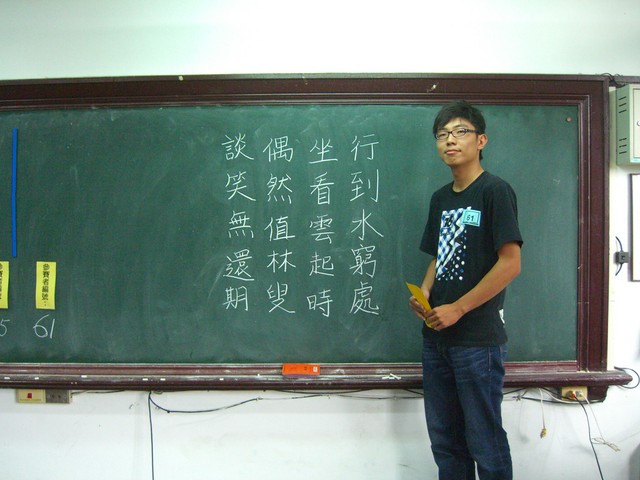 行到水窮處
坐看雲起時
偶然值林叟
談笑無還期
參賽者編號：
61
5
61